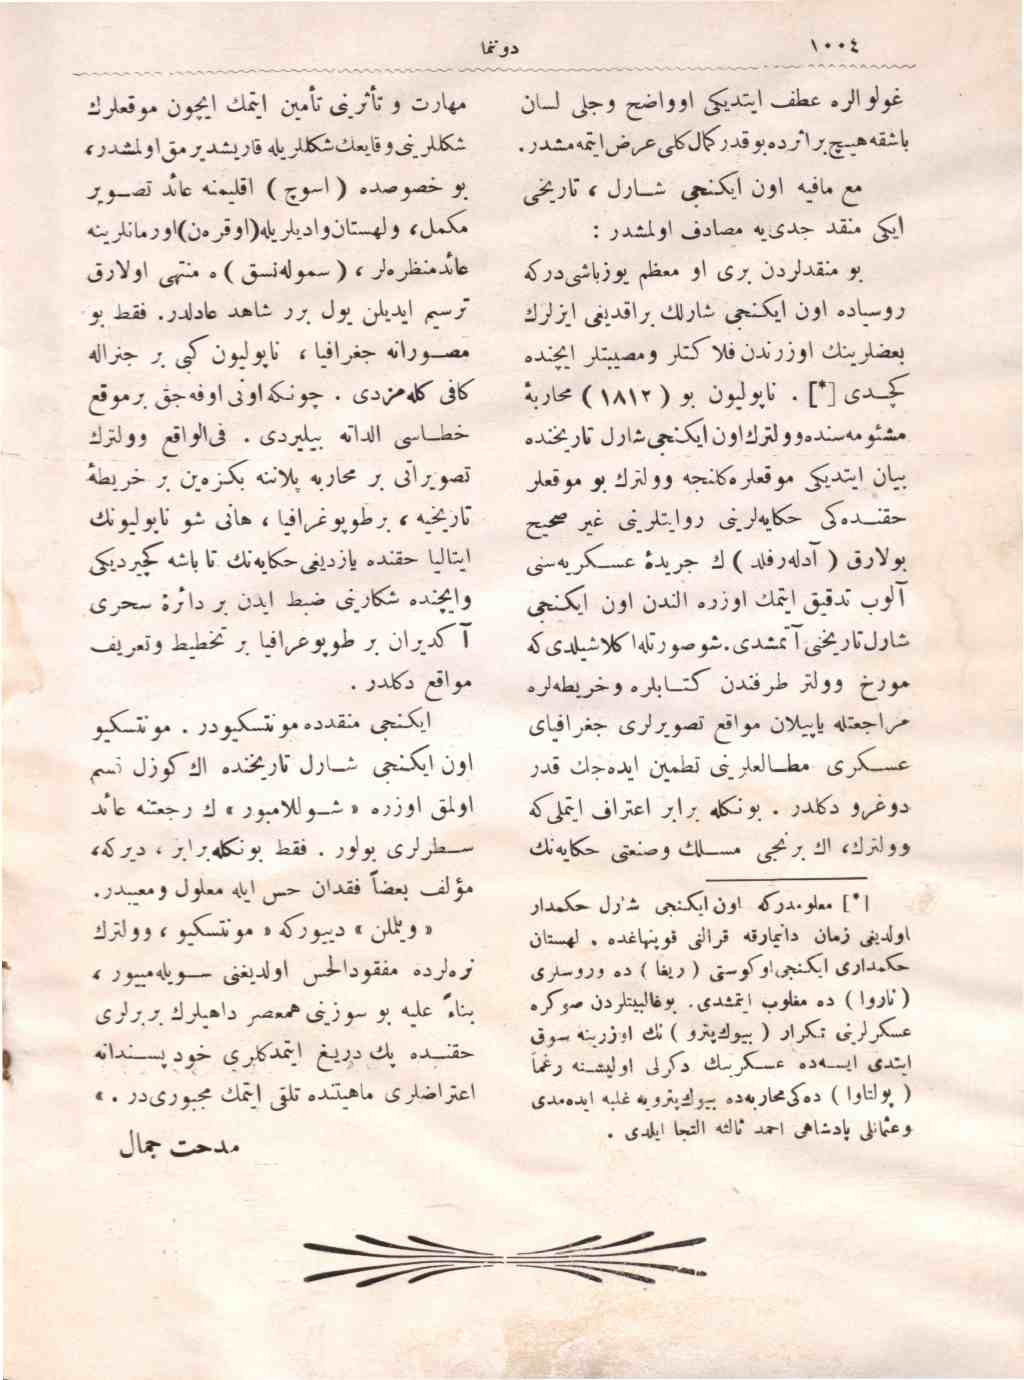 ١٠٠٤
دوننما
غولوالره عطف ايتديكى اوواضح وجلى لسان
باشقه هيچ بر اثرده بو قدر كمال كلى عرض ايتمه مشدر.
مع مافيه اون ايكنجى شارل ، تاريخى
ايكى منقد جدى يه مصادف اولمشدر :
بو منقدلردن برى او معظم يوزباشى دركه
روسياده اون ايكنجى شارلك براقديغى ايزلرك
بعضلرينك اوزرندن فلاكتلر ومصيبتلر ايچنده
كچدى [*] . ناپوليون بو ( ١٨١٢ ) محاربۀ
مشئومه سنده وولترك اون ايكنجى شارل تاريخنده
بيان ايتديكى موقعلره كلنجه وولترك بو موقعلر
حقنده كى حكايه لرينى روايتلرينى غير صحيح
بولارق ( آدله رفلد ) ك جريدۀ عسكريه سنى
آلوب تدقيق ايتمك اوزره الندن اون ايكنجى
شارل تاريخنى آتمشدى. شو صورتله اكلاشيلدى كه
مورخ وولتر طرفندن كتابلره وخريطه لره
مراجعتله ياپيلان مواقع تصويرلرى جغرافياى
عسكرى مطالعلرينى تطمين ايده جك قدر
دوغرو دكلدر . بونكله برابر اعتراف ايتملى كه
وولترك، اك برنجى مسلك وصنعتى حكايه نك
[*] معلومدركه اون ايكنجى شارل حكمدار
اولديغى زمان دانيمارقه قرالنى قوپنهاغده ، لهستان
حكمدارى ايكنجى اوكوستى ( ريغا ) ده وروسلرى
( ناروا ) ده مغلوب ايتمشدى. بوغالبيتلردن صوكره
عسكرلرينى تكرار ( بيوك پترو ) نك اوزرينه سوق
ايتدى ايسه ده عسكرينك دكرلى اوليشنه رغماً
( پولتاوا ) ده كى محاربه ده بيوك پترويه غلبه ايده مدى
وعثمانلى پادشاهى احمد ثالثه التجا ايلدى .
مهارت و تأثرينى تأمين ايتمك ايچون موقعلرك
شكللرينى وقايعك شكللريله قاريشديرمق اولمشدر،
بو خصوصده ( اسوچ ) اقليمنه عائد تصوير
مكمل، ولهستان واديلريله (اوقره ن) اورمانلرينه
عائد منظره لر ، ( سموله نسق ) ه منتهى اولارق
ترسيم ايديلن يول برر شاهد عادلدر. فقط بو
مصورانه جغرافيا ، ناپوليون كبى بر جنراله
كافى كله مزدى . چونكه اونى اوفه جق بر موقع
خطاسى الداته بيليردى . فى الواقع وولترك
تصويراتى بر محاربه پلاننه بكزه ين بر خريطۀ
تاريخيه ، بر طوپوغرافيا ، هانى شو ناپوليونك
ايتاليا حقنده يازديغى حكايه نك تا باشه كچيرديكى
وايچنده شكارينى ضبط ايدن بر دائرۀ سحرى
آكديران بر طوپوغرافيا بر تخطيط وتعريف
مواقع دكلدر .
ايكنجى منقدده مونتسكيودر . مونتسكيو
اون ايكنجى شارل تاريخنده اك كوزل قسم
اولمق اوزره « شوللامبور » ك رجعتنه عائد
سطرلرى بولور . فقط بونكله برابر ، ديركه،
مؤلف بعضاً فقدان حس ايله معلول ومعيبدر.
« ويللن » دييوركه « مونتسكيو ، وولترك
نره لرده مفقودالحس اولديغنى سويله مييور ،
بناءً عليه بو سوزينى همعصر داهيلرك بربرلرى
حقنده پك دريغ ايتمدكلرى خودپسندانه
اعتراضلرى ماهيتنده تلقى ايتمك مجبورى در . »
مدحت جمال